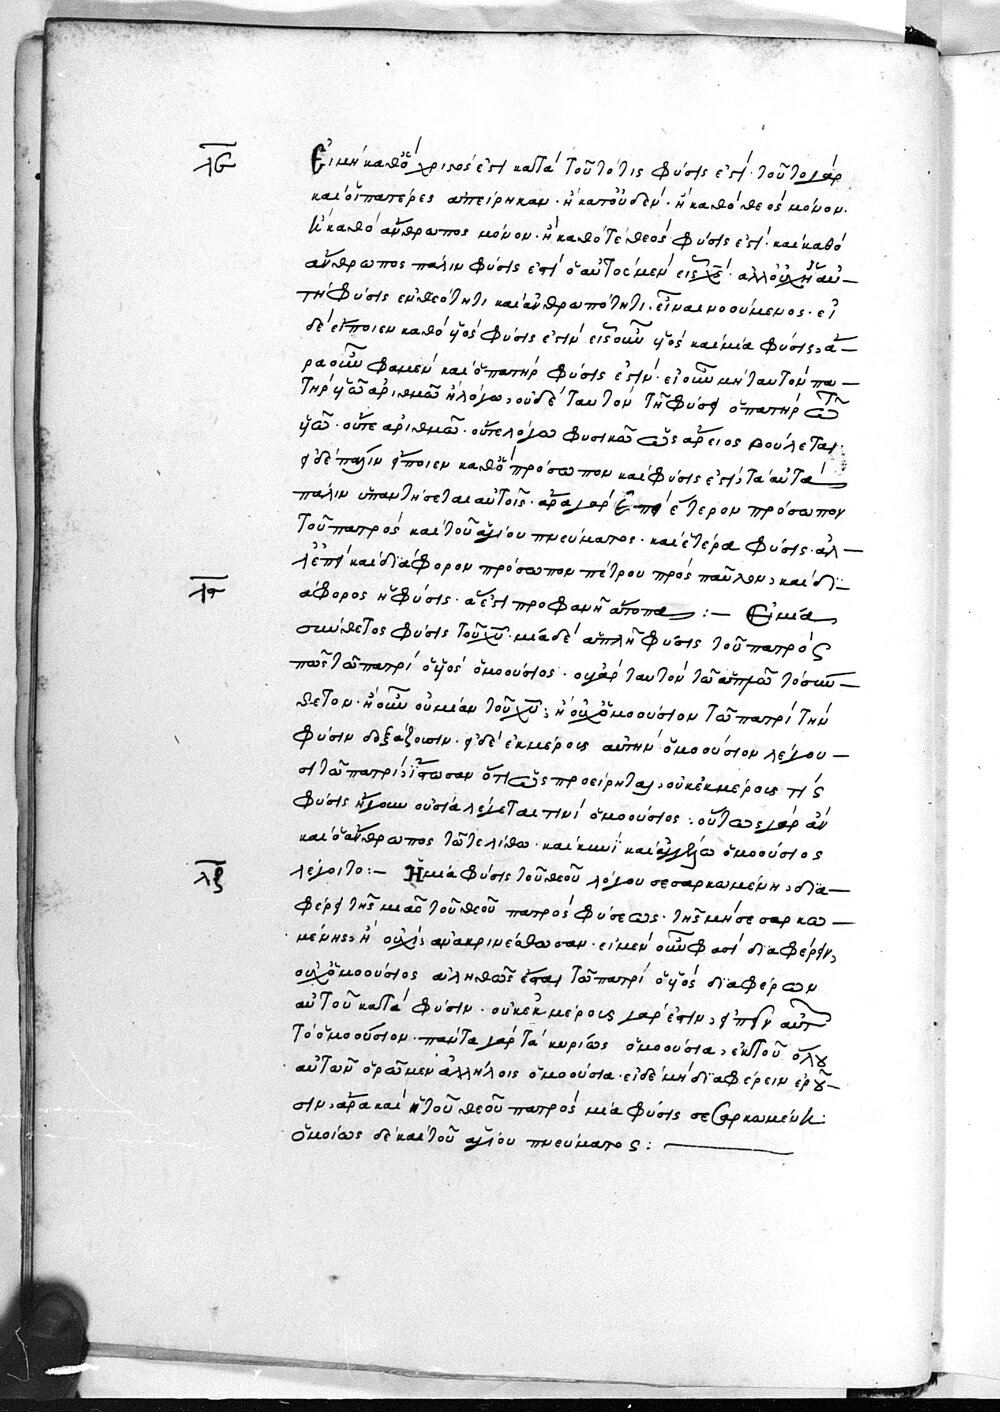 λε
Εἰ μὴ καθὸ χριστός ἐστι κατὰ τοῦτό τις φύσις ἐστὶ· τοῦτο γὰρ
καὶ οἱ πατέρες ἀπείρηκαν· ἢ κατ' οὐδέν· ἢ καθὸ θεὸς μόνον·
ἢ καθὸ ἄνθρωπος μόνον· ἢ καθό τε θεὸς φύσις ἐστὶ· καὶ καθὸ
ἄνθρωπος πάλιν φύσις ἐστὶ ὁ αὐτὸς μὲν εἷς χς· ἀλλ' οὐχὶ ἡ αὐ-
τὴ φύσις ἐν θεότητι καὶ ἀνθρωπότητι εἶναι νοούμενος· εἰ
δὲ εἴποιεν καθὸ υἱὸς φύσις ἐστὶν εἷς οὖν υἱὸς καὶ μία φύσις, ἄ-
ρα οὖν φαμὲν καὶ ὁ πατὴρ φύσις ἐστίν· εἰ οὖν μὴ ταυτὸν πα-
τὴρ υἱῶ ἀριθμῶ ἢ λόγω, οὐδὲ ταυτὸν τῆ φύσει ὁ πατὴρ τῶ
υἱῶ· οὔτε ἀριθμῶ· οὔτε λόγω φυσικῶ ὡς ἄρειος βούλεται·
εἰ δὲ πάλιν εἴποιεν καθὸ πρόσωπον καὶ φύσις ἐστὶ, τὰ αὐτὰ
πάλιν ὑπαντήσεται αὐτοῖς· ἄρα γὰρ ἐπεὶ ἕτερον πρόσωπον
τοῦ πατρὸς καὶ τοῦ ἁγίου πνεύματος· καὶ ἑτέρα φύσις· ἀλ-
λ' ἐπεὶ καὶ διάφορον πρόσωπον πέτρου πρὸς παῦλον, καὶ δι-
άφορος ἡ φύσις· ἅ ἐστι προφανῆ ἄτοπα :– Εἰ μία
λς
σύνθετος φύσις τοῦ χυ· μία δὲ ἁπλῆ φύσις τοῦ πατρός
πῶς τῶ πατρὶ ὁ υἱὸς ὁμοούσιος· οὐ γὰρ ταυτὸν τῶ ἁπλῶ τὸ σύν-
θετον· ἢ οὖν οὐ μίαν τοῦ χυ; ἢ οὐχ ὁμοούσιον τῶ πατρὶ τὴν
φύσιν δοξάζουσιν· εἰ δὲ ἐκ μέρους αὐτὴν ὁμοούσιον λέγου-
σι τῶ πατρὶ, ἴστωσαν ὅτι ὡς προείρηται, οὐκ ἐκ μέρους τίς
φύσις ἤγουν οὐσία λέγεται τινὶ ὁμοούσιος· οὕτως γὰρ ἂν
καὶ ὁ ἄνθρωπος τῶ τε λίθω· καὶ κυνὶ καὶ ἀγγέλω ὁμοούσιος
λζ
λέγοιτο :– Ἡ μία φύσις τοῦ θεοῦ λόγου σεσαρκωμένη, δια-
φέρει τῆς μιᾶς τοῦ θεοῦ πατρὸς φύσεως· τῆς μὴ σεσαρκω-
μένης, ἢ οὐχὶ, ἀνακρινέσθωσαν· εἰ μὲν οὖν φασὶ διαφέρειν,
οὐχ ὁμοούσιος ἀληθῶς ἔσται τῶ πατρὶ ὁ υἱὸς διαφέρων
αὐτοῦ κατὰ φύσιν· οὐκ ἐκ μέρους γὰρ ἔστιν, εἰπεῖν αὐτῶ
τὸ ὁμοούσιον· πάντα γὰρ τὰ κυρίως ὁμοούσια, ἐκ τοῦ ὅλου
αὐτῶν ὁρῶμεν ἀλλήλοις ὁμοούσια· εἰ δὲ μὴ διαφέρειν ἐροῦ-
σιν, ἄρα καὶ ἡ τοῦ θεοῦ πατρὸς μία φύσις σεσαρκωμένη·
ὁμοίως δὲ καὶ τοῦ ἁγίου πνεύματος :